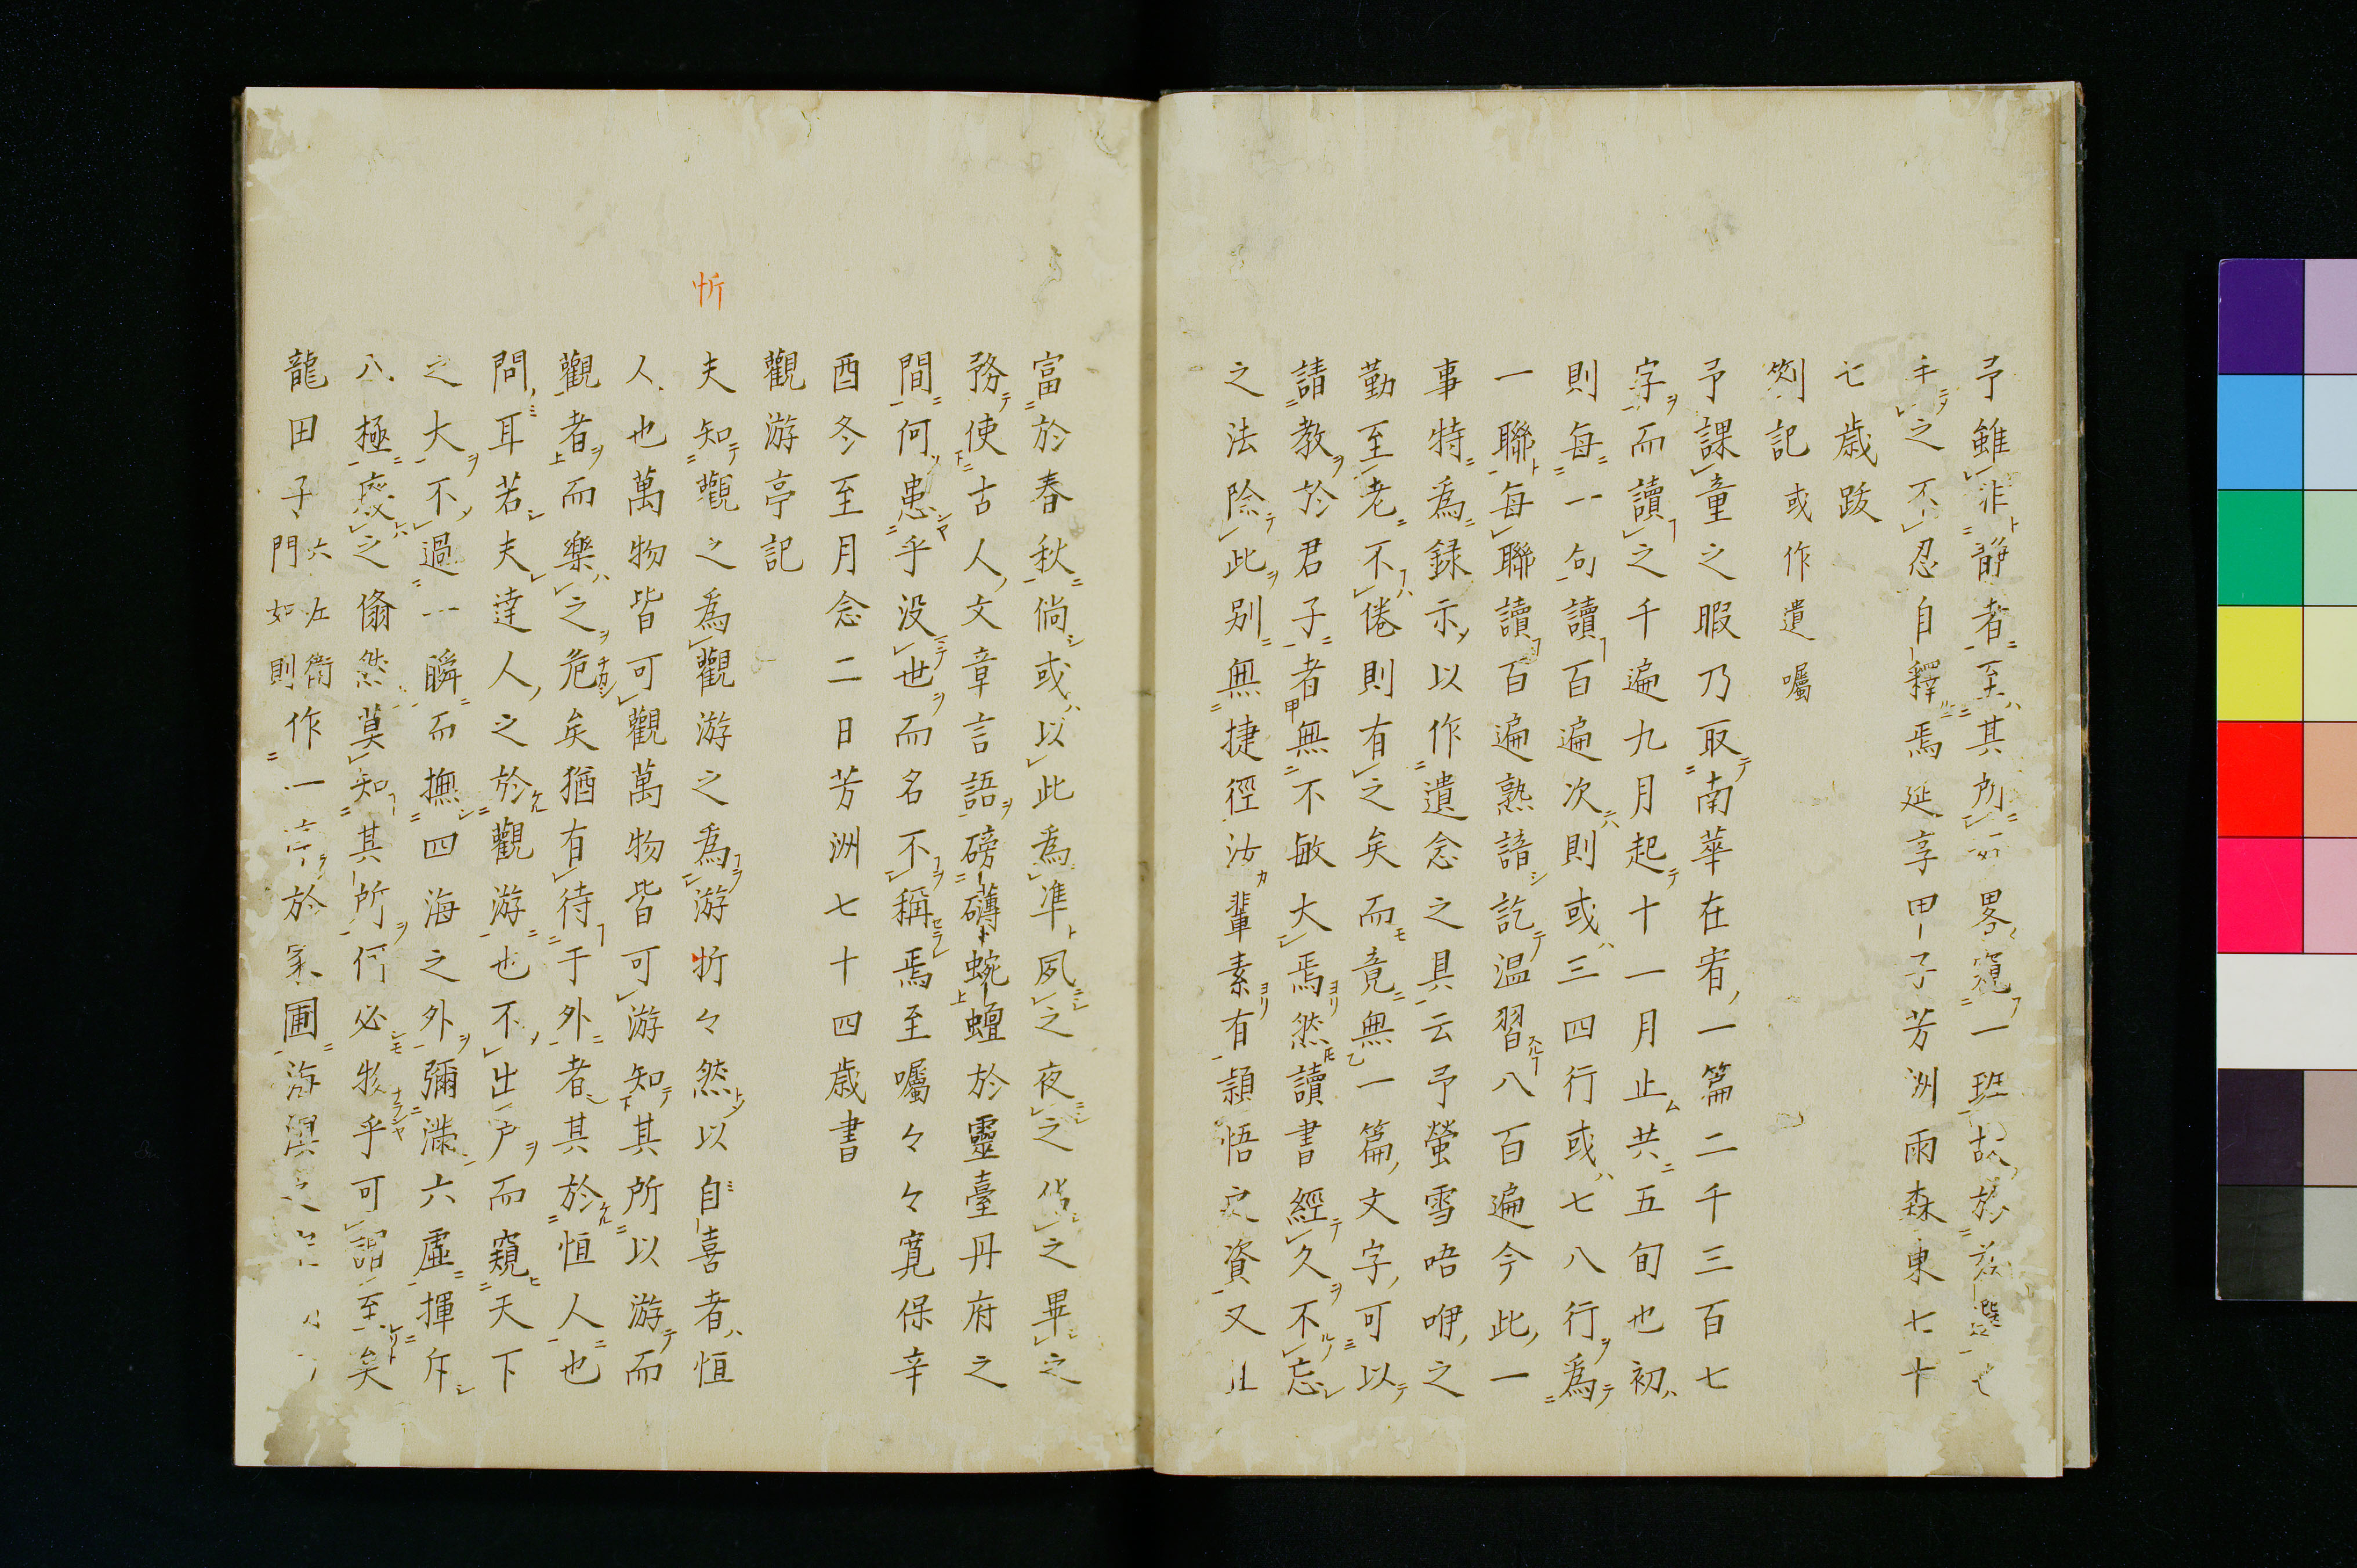 予雖非靜者至其所畧窺一班故於茲
手之不忍自釋焉延享甲子芳洲雨森東七十
七歲跋
劄記或作遺囑
予課童之暇乃取南華在宥一篇二千三百七
字而讀之千遍九月起十一月止共五旬也初
則每一句讀百遍次則或三四行或七八行為
一聯每聯讀百遍熟諳訖温習八百遍今此一
事特為錄示以作遺念之具云予螢雪唔咿之
勤至老不倦則有之矣而竟無一篇文字可以
請教於君子者無不敏大焉然讀書經久不忘
之法除此别無捷徑汝輩素有頴悟之資又
富於春秋倘或以此為準夙之夜之之畢之
務使古人文章言語磅礴蜿蟺於靈臺丹府之
間何患乎没世而名不稱焉至囑々々寛保辛
酉冬至月念二日芳洲七十四歲書
觀游亭記
忻
夫知觀之為觀游之為游忻々然以自喜者恒
人也萬物皆可觀萬物皆可游知其所以游而
觀者而樂之危矣猶有待于外者其於恒人也
問耳若夫達人之於觀游也不出户而窺天下
之大不過一瞬而撫四海之外彌滿六虛揮斥
八極廢之翛然莫知其所何必物乎可謂至矣
龍田子六左衛門如則作一亭於家圃海濱之